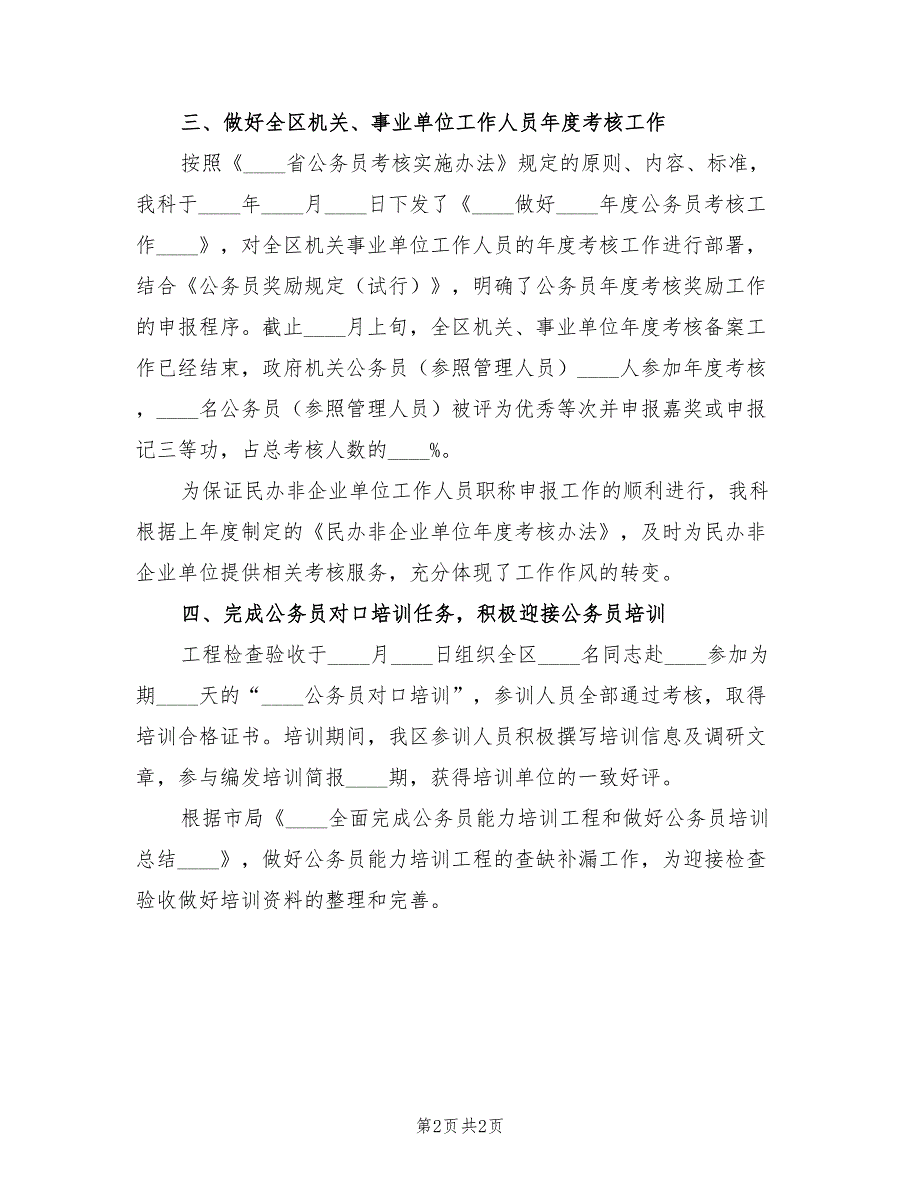 三、做好全区机关、事业单位工作人员年度考核工作
按照《____省公务员考核实施办法》规定的原则、内容、标准，
我科于____年____月____日下发了《____做好____年度公务员考核工
作____》，对全区机关事业单位工作人员的年度考核工作进行部署，
结合《公务员奖励规定（试行）》，明确了公务员年度考核奖励工作
的申报程序。截止____月上旬，全区机关、事业单位年度考核备案工
作已经结束，政府机关公务员（参照管理人员）____人参加年度考核
，____名公务员（参照管理人员）被评为优秀等次并申报嘉奖或申报
记三等功，占总考核人数的____%。
为保证民办非企业单位工作人员职称申报工作的顺利进行，我科
根据上年度制定的《民办非企业单位年度考核办法》，及时为民办非
企业单位提供相关考核服务，充分体现了工作作风的转变。
四、完成公务员对口培训任务，积极迎接公务员培训
工程检查验收于____月____日组织全区____名同志赴____参加为
期____天的“____公务员对口培训”，参训人员全部通过考核，取得
培训合格证书。培训期间，我区参训人员积极撰写培训信息及调研文
章，参与编发培训简报____期，获得培训单位的一致好评。
根据市局《____全面完成公务员能力培训工程和做好公务员培训
总结____》，做好公务员能力培训工程的查缺补漏工作，为迎接检查
验收做好培训资料的整理和完善。
第2页 共2页